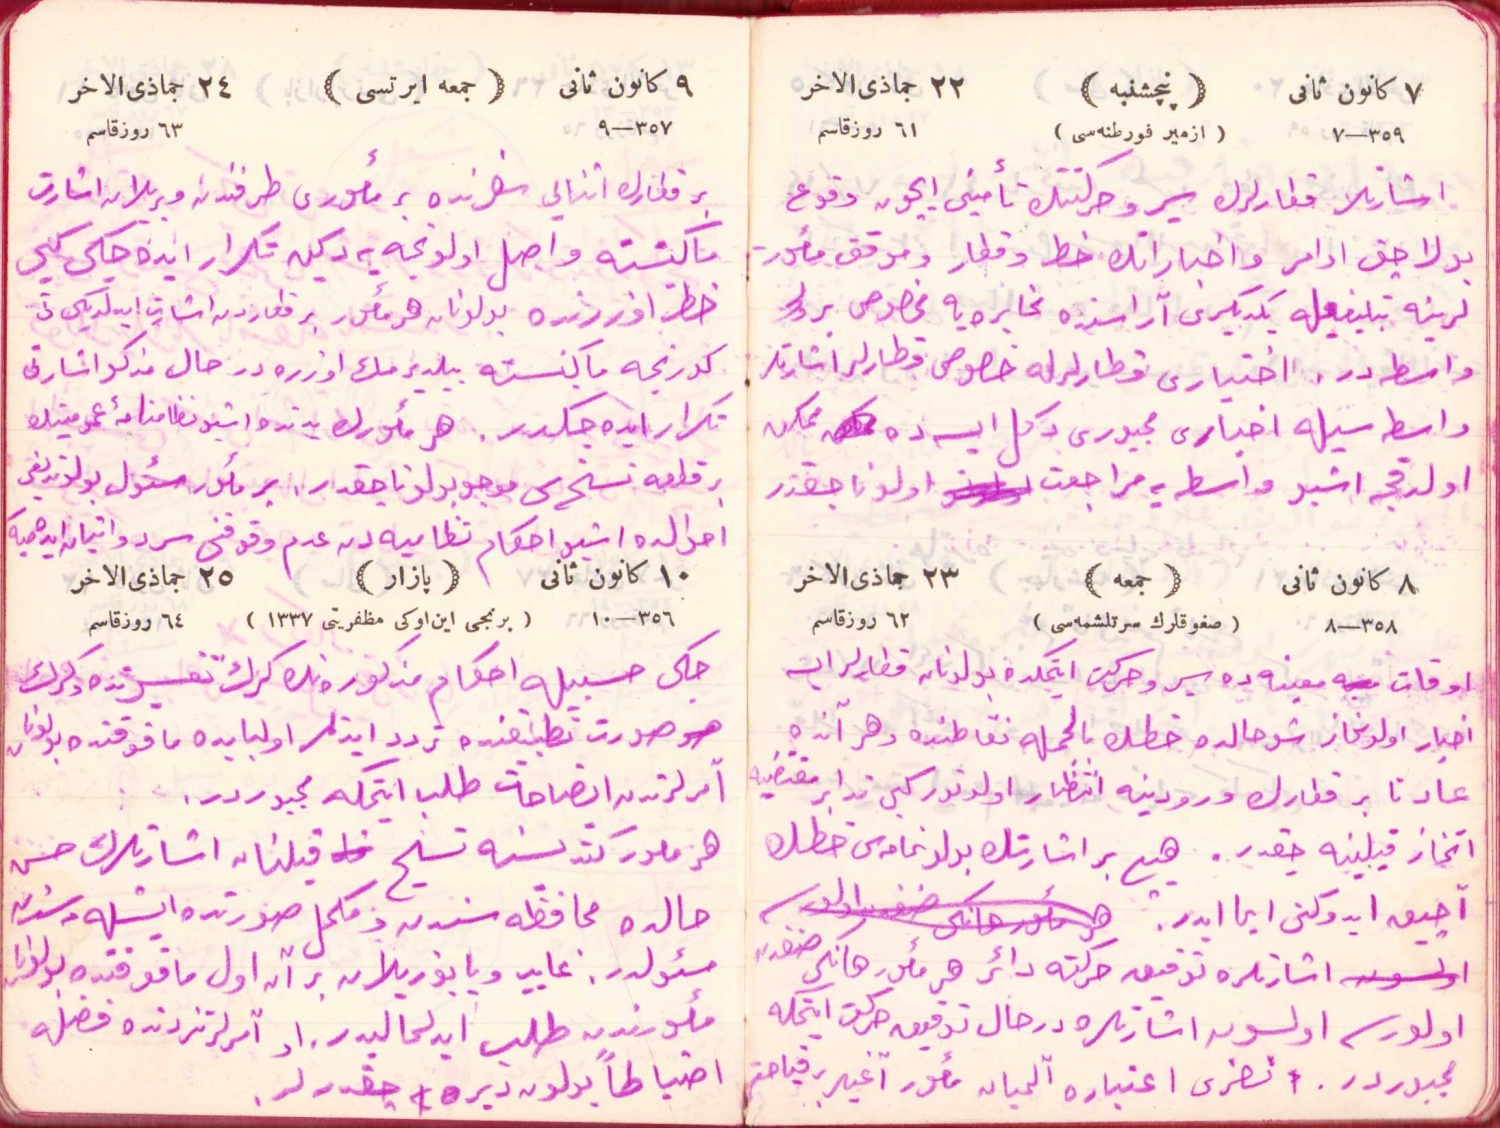 ٧ كانون ثانی ﴿ پنچشنبه ﴾ ٢٢ جماذی‌الاخر
٣٥٩—٧ ( ازمیر فورطنه‌سی ) ٦١ روزقاسم
اشارتلر قطارلرك سیر و حركتنك تأمینی ایچون وقوع
بولاجق اوامر و اخباراتك خط و قطار و موقف مأمور
لرینه تبلیغیله یكدیگری آراسنده مخابره‌یه مخصوص برر
واسطه در. اختیاری قطارلرله خصوصی قطارلر اشارتلر
واسطه سیله اخباری مجبوری دكل ایسه ده ممكن
اولدقجه اشبو واسطه‌یه مراجعت اولوناجقدر
٨ كانون ثانی ﴿ جمعه ﴾ ٢٣ جماذی‌الاخر
٣٥٨—٨ ( صغوقلرك سرتلشمه‌سی ) ٦٢ روزقاسم
اوقات معینه ده سیر و حركت ایتمكده بولونان قطارلر ایسه
اخبار اولونماز شو حالده خطك بالجمله نقاطنده و هر آنده
عادتا بر قطارك ورودینه انتظار اولونور كبی تدابیر مقتضیه
اتخاذ قیلینه جقدر. هیچ بر اشارتك بولونمامه‌سی خطك
آچیق ایدوكنی ایما ایدر. هر مأمور هانكی صنفدن اولورسه
اولسون اشارتلره توفیق حركته دائر هر مأمور هانكی صنفدن
اولورسه اولسون اشارتلره درحال توفیق حركت ایتمكه
مجبوردر. نظری اعتباره آلمیان مأمور آغیر بر قباحت
٩ كانون ثانی ﴿ جمعه ایرتسی ﴾ ٢٤ جماذی‌الاخر
٣٥٧—٩ ٦٣ روزقاسم
بر قطارك اثنای سفرنده بر مأموری طرفندن ویریلان اشارت
ماكنیسته واصل اولونجه‌یه دكین تكرار ایده‌جكی كبی
خط اوزرنده بولونان هر مأمور بر قطاردن اشارت ایدلدیكنی
كورنجه ماكنیسته بیلدیرمك اوزره درحال مذكور اشارتی
تكرار ایده‌جكدر. هر مأمورك یدنده اشبو نظامنامۀ عمومینك
بر قطعه نسخه سی موجود بولوناجقدر. بر مأمور مسئول بولوندیغی
احوالده اشبو احكام نظامیه دن عدم وقوفنی سرد و اتیان ایده‌میه
١٠ كانون ثانی ﴿ پازار ﴾ ٢٥ جماذی‌الاخر
٣٥٦—١٠ ( برنجی این‌اوكی مظفریتی ١٣٣٧ ) ٦٤ روزقاسم
جكی حسبیله احكام مذكوره‌نك كرك تفسیرنده و كرك
صورت تطبیقنده تردد ایدنلر اولبابده مافوقنده بولونان
آمرلرندن ایضاحات طلب ایتمكه مجبوردر.
هر مأمور كندیسنه تسلیم قیلنان اشارتلرك حسن
حالده محافظه سندن و مكمل صورتده ایشله مه‌سندن
مسئولدر. غایب ویا بوزیلان بر آن اول مافوقنده بولونان
مأموریندن طلب ایدلمالیدر. آمرلر نزدنده فضله
احتیاطاً بولوندیره جقدرلر.